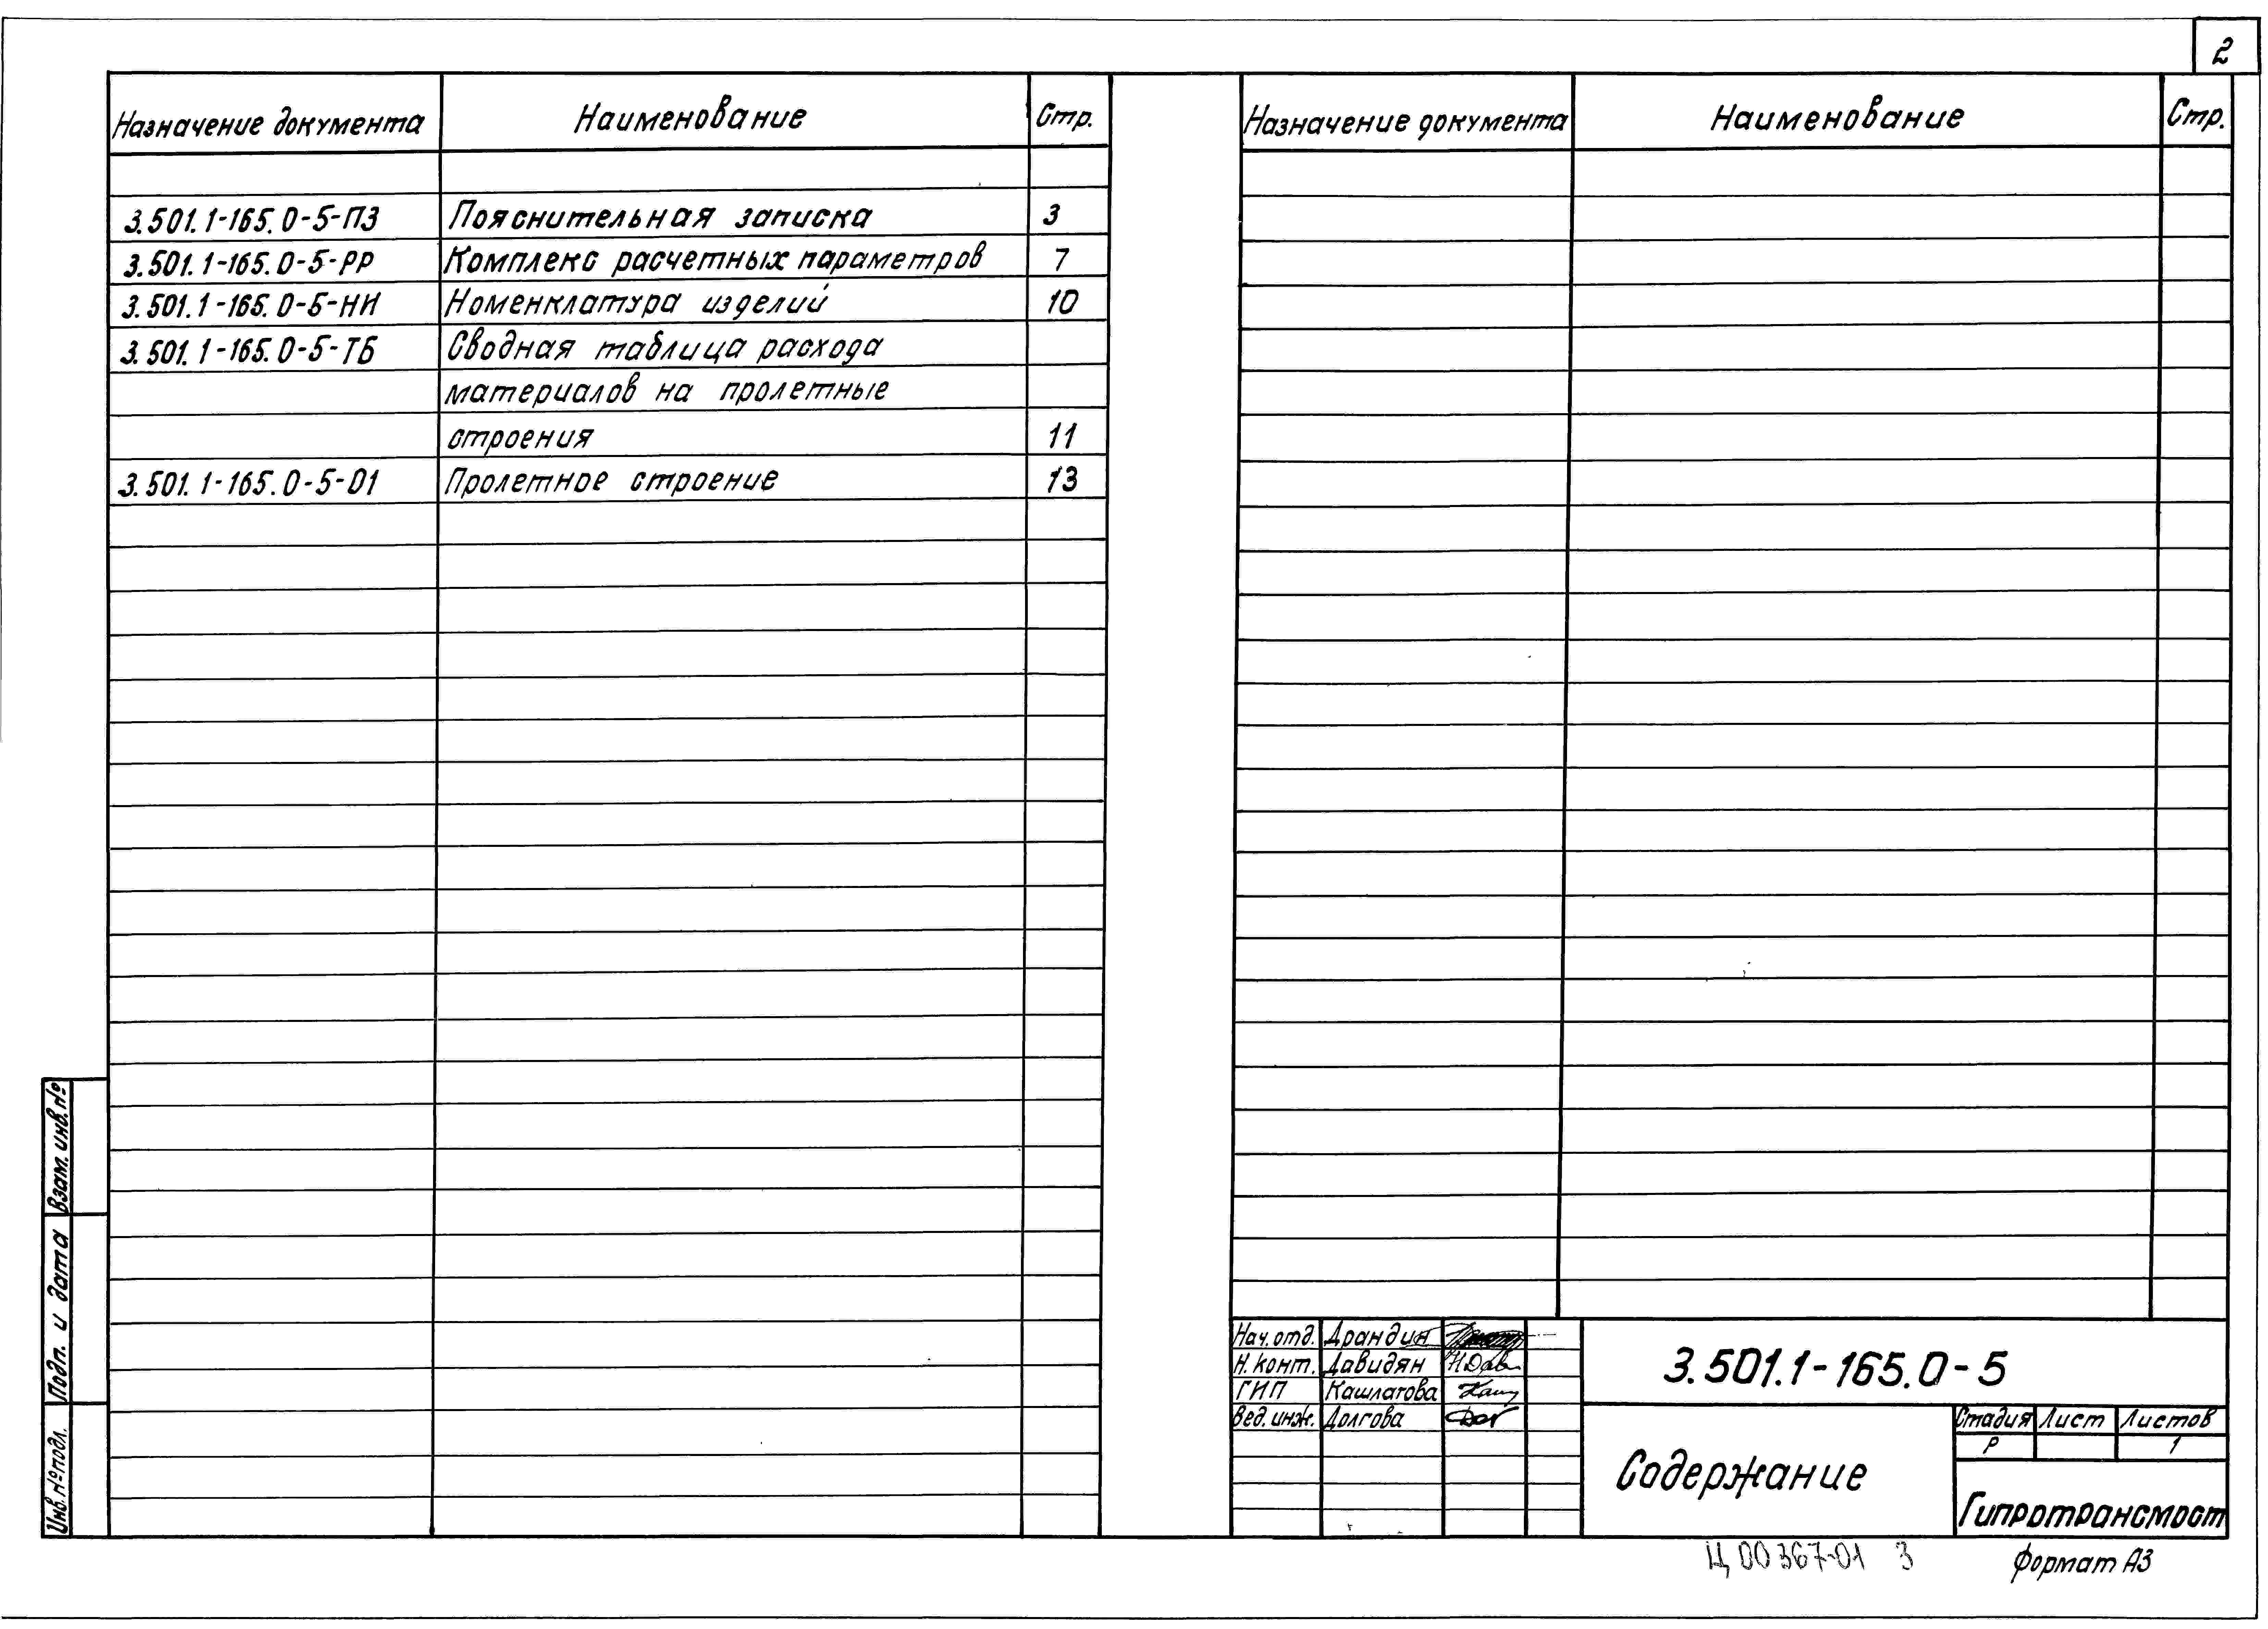 2
Назначение документа Наименование Стр.
3.501.1-165.0-5-ПЗ Пояснительная записка 3
3.501.1-165.0-5-РР Комплекс расчетных параметров 7
3.501.1-165.0-5-НИ Номенклатура изделий 10
3.501.1-165.0-5-ТБ Сводная таблица расхода
материалов на пролетные
строения 11
3.501.1-165.0-5-01 Пролетное строение 13
Назначение документа Наименование Стр.
Взам. инв. №
Подп. и дата
Инв. № подл.
Нач. отд. Драндин
Н. конт. Давидян
ГИП Кашлатова
Вед. инж. Долгова
3.501.1-165.0-5
Содержание
Стадия Лист Листов
Р 1
Гипротрансмост
Ц00367-01 3
Формат А3